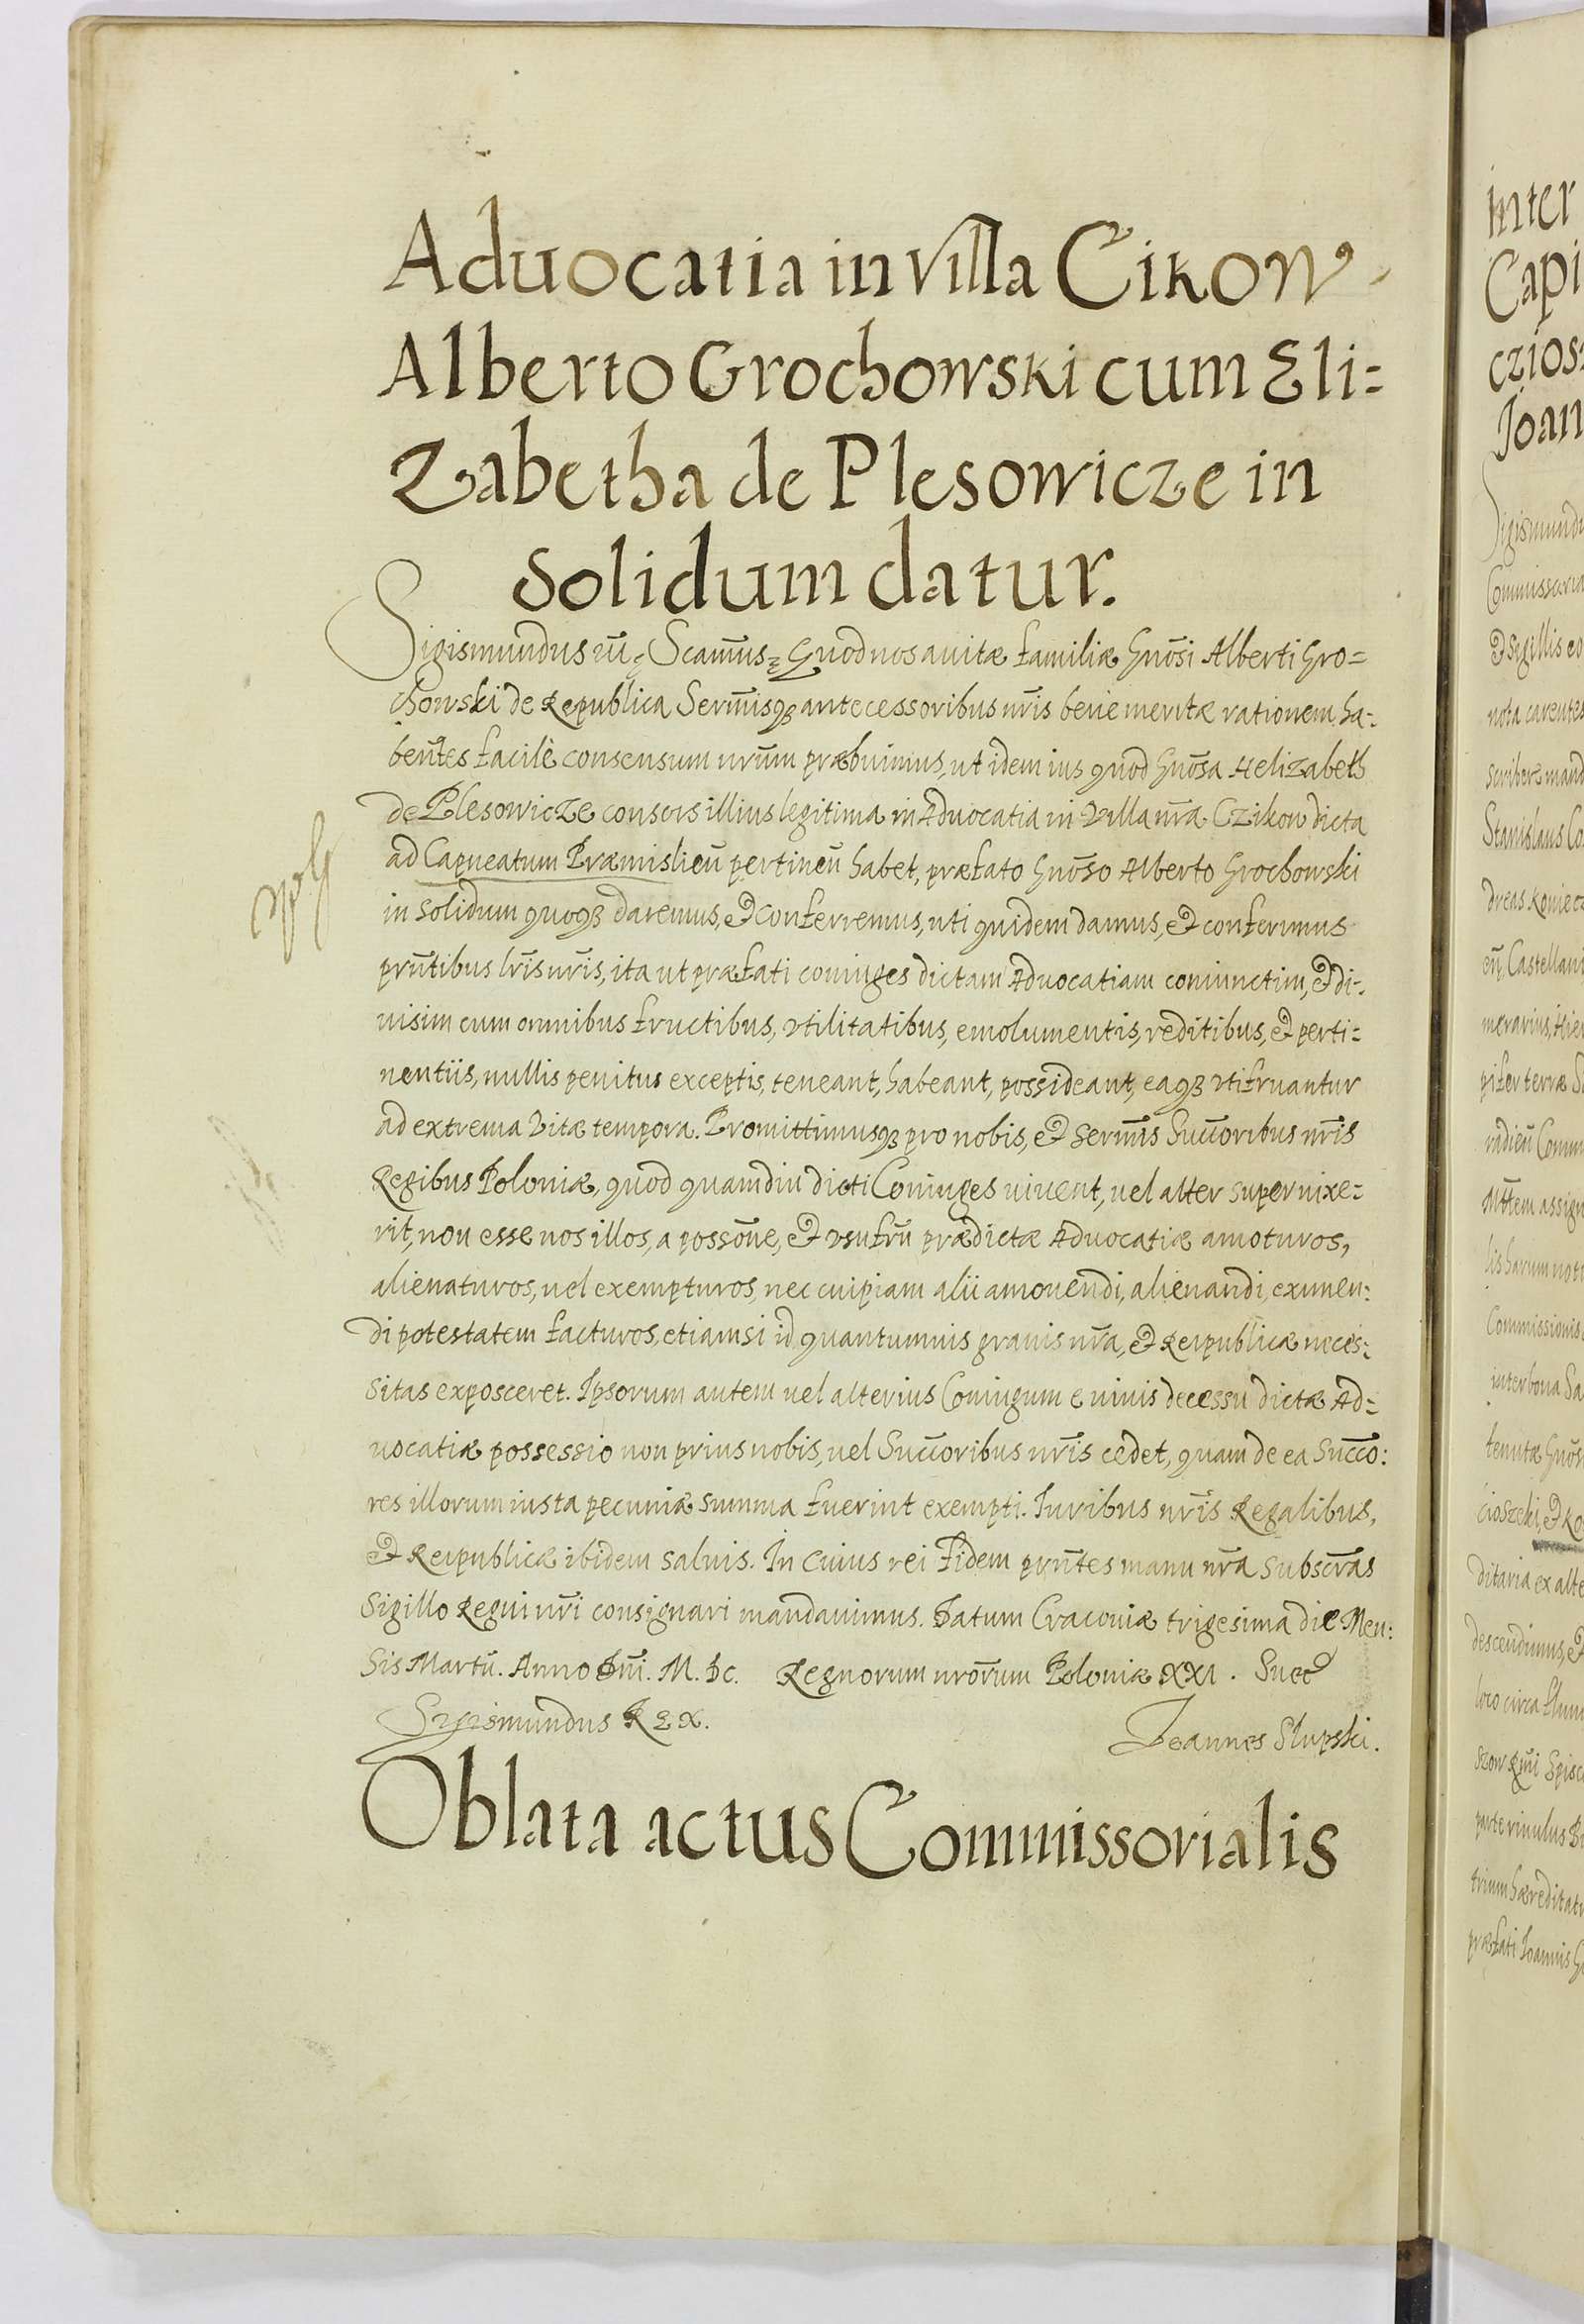 Aduocatia in villa Cikow
Alberto Grochowski cum Eli=
Zabetha de Plesowicze in
solidum datur.
Sigismundus Scam̄us Quod nos auitæ familiæ Gnōsi Alberti Gro=
chowski de Republica Serm̄isq3 antecessoribus nr̄is bene meritæ rationem ha=
bentes facilè consensum nrūm præbuimus, ut idem ius quod Gnōsa Helizabeth
de Plesowicze consors illius legitima in Aduocatia in Villa nr̄a Czikow dicta
ad Capneatum Præmislieū pertineū habet, præfato Gnōso Alberto Grochowski
in solidum quoq3 daremus, et conferremus, uti quidem damus, et conferimus
prn̄tibus lr̄is nr̄is, ita ut præfati coniuges dictam Aduocatiam coniunctim, et di=
uisim cum omnibus fructibus, vtilitatibus, emolumentis, reditibus, et perti=
nentiis, nullis penitus exceptis, teneant, habeant, possideant, eaq3 vtifruantur
ad extrema vitæ tempora. Promittimusq3 pro nobis, et serm̄is Succ̄oribus nr̄is
Regibus Poloniæ, quod quamdiu dicti Coniuges uiuent, uel alter superuixe=
rit, non esse nos illos, a possōne, et vsufrū prædictæ Aduocatiæ amoturos,
alienaturos, uel exempturos, nec cuipiam alii amouendi, alienandi, eximen=
di potestatem facturos, etiamsi id quantumuis grauis nr̄a, et Reipublicæ neces=
sitas exposceret. Ipsorum autem uel alterius Coniugum e uiuis decessu dictæ Ad=
uocatiæ possessio non prius nobis, uel Succ̄oribus nr̄is cedet, quam de ea Succo=
res illorum iusta pecuniæ summa fuerint exempti. Iuribus nr̄is Regalibus,
et Reipublicæ ibidem saluis. In cuius rei fidem prn̄tes manu nr̄a subscr̄as
Sigillo Regni nr̄i consignari mandauimus. Datum Cracouiæ trigesima die Men=
sis Martii. Anno Dn̄i. M. Dc. Regnorum nrōrum Poloniæ XXI. Suec
Sigismundus Rex.
Joannes Slupski.
Oblata actus Commissorialis
inter
Capi
czios=
Joan
Sigismundu
Commissaria
et sigillis eo
nota carentes
scribere mand
Stanislaus Co
dreas Koniec
Castellani
merarius, Hie
pifer terræ S
assign
lis harum not
Commissionis
inter bona Sa
tenutæ Gnōs
cioszeki, et Ro
ditaria ex alte
descendimus, et
loco circa flum
parte riuulus
trium hæreditat
præfati Ioannis